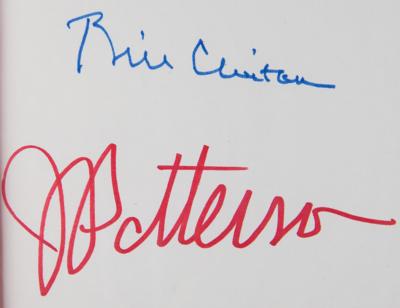 Bill Clinton
J Patterson